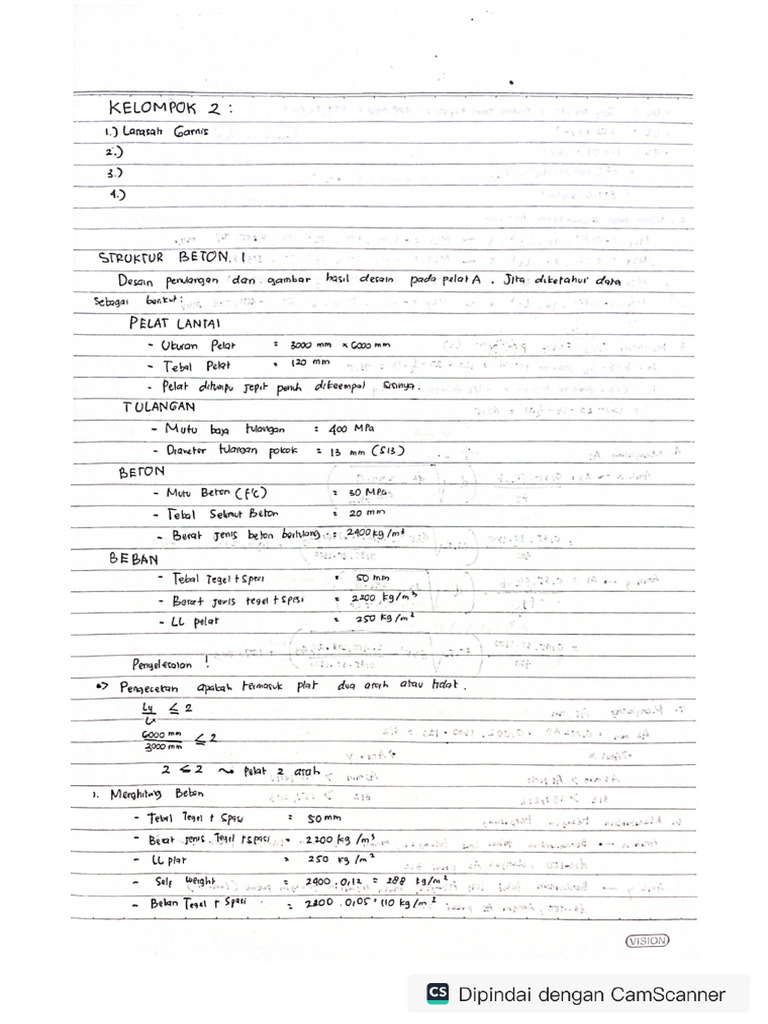 KELOMPOK 2 :
1.) Larasati Garnis
2.)
3.)
4.)
STRUKTUR BETON 1
Desain penulangan dan gambar hasil desain pada pelat A . Jika diketahui data
Sebagai berikut :
PELAT LANTAI
- Ukuran Pelat = 3000 mm x 6000 mm
- Tebal Pelat = 120 mm
- Pelat ditumpu jepit penuh dikeempat sisinya.
TULANGAN
- Mutu baja tulangan = 400 MPa
- Diameter tulangan pokok = 13 mm (S13)
BETON
- Mutu Beton (f'c) = 30 MPa
- Tebal Selimut Beton = 20 mm
- Berat jenis beton bertulang = 2400 kg/m³
BEBAN
- Tebal Tegel + Spesi = 50 mm
- Berat jenis tegel + spesi = 2200 kg/m³
- LL pelat = 250 kg/m²
Penyelesaian !
=> Pengecekan apakah termasuk plat dua arah atau tidak.
Ly/Lx ≤ 2
6000 mm/3000 mm ≤ 2
2 ≤ 2 ~> Pelat 2 arah
1. Menghitung Beban
- Tebal Tegel + Spesi = 50 mm
- Berat jenis Tegel + spesi = 2200 kg/m³
- LL plat = 250 kg/m²
- Self weight = 2400 . 0,12 = 288 kg/m²
- Beban Tegel + Spesi = 2200 . 0,05 = 110 kg/m²
VISION
CS Dipindai dengan CamScanner